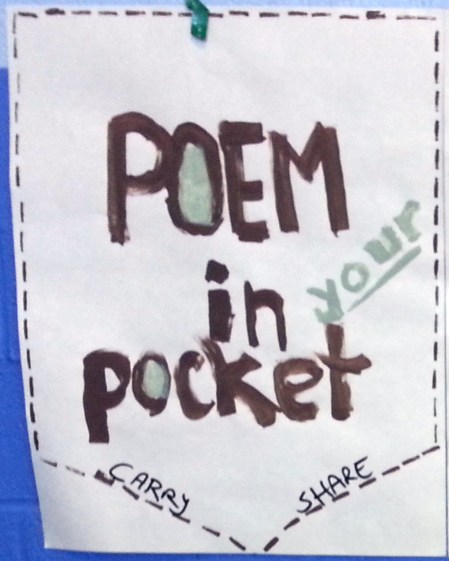 POEM
in your
pocket
CARRY SHARE